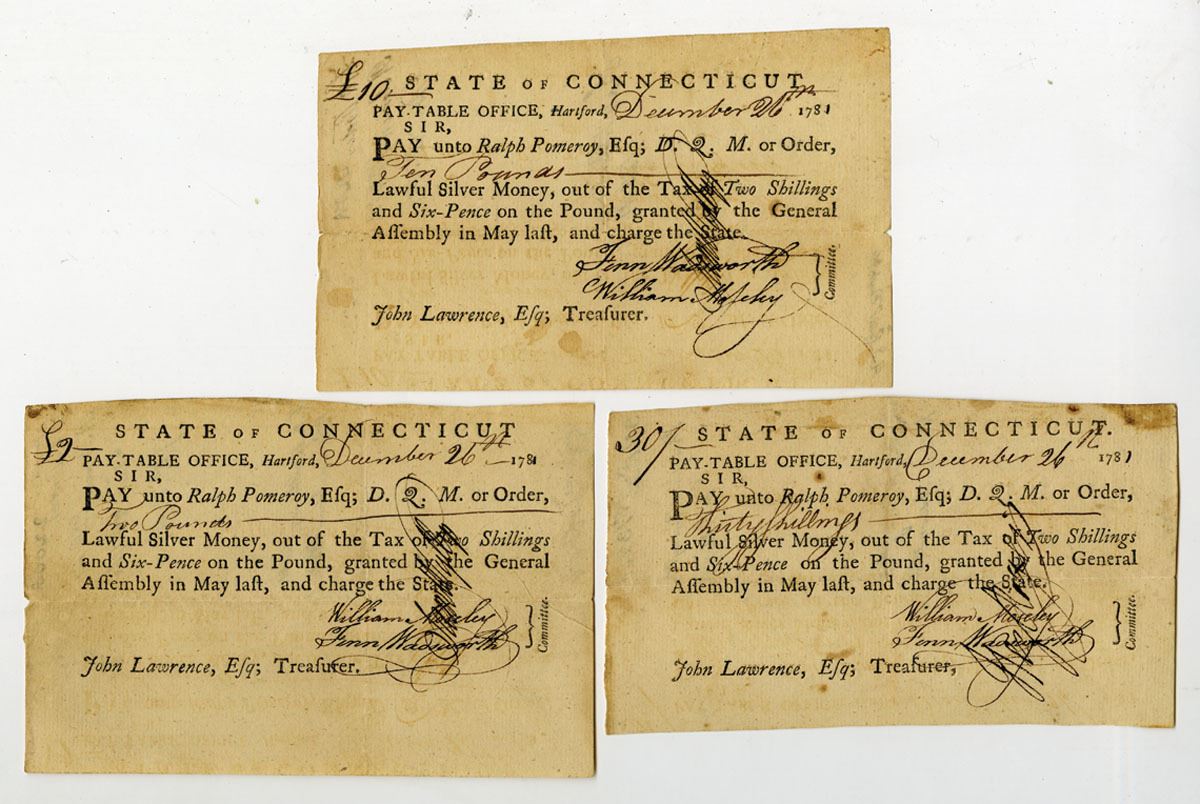 £10 STATE OF CONNECTICUT
PAY-TABLE OFFICE, Hartford, December 26th 1781
SIR,
PAY unto Ralph Pomeroy, Eſq; D. Q. M. or Order,
Ten Pounds
Lawful Silver Money, out of the Tax of Two Shillings
and Six-Pence on the Pound, granted by the General
Aſſembly in May laſt, and charge the State.
Fenn Wadsworth
William Moseley
Committee.
John Lawrence, Eſq; Treaſurer.
£2 STATE OF CONNECTICUT
PAY-TABLE OFFICE, Hartford, December 26th 1781
SIR,
PAY unto Ralph Pomeroy, Eſq; D. Q. M. or Order,
Two Pounds
Lawful Silver Money, out of the Tax of Two Shillings
and Six-Pence on the Pound, granted by the General
Aſſembly in May laſt, and charge the State.
William Moseley
Fenn Wadsworth
Committee.
John Lawrence, Eſq; Treaſurer.
30/ STATE OF CONNECTICUT.
PAY-TABLE OFFICE, Hartford, December 26th 1781
SIR,
PAY unto Ralph Pomeroy, Eſq; D. Q. M. or Order,
Thirty Shillings
Lawful Silver Money, out of the Tax of Two Shillings
and Six-Pence on the Pound, granted by the General
Aſſembly in May laſt, and charge the State.
William Moseley
Fenn Wadsworth
Committee.
John Lawrence, Eſq; Treaſurer,